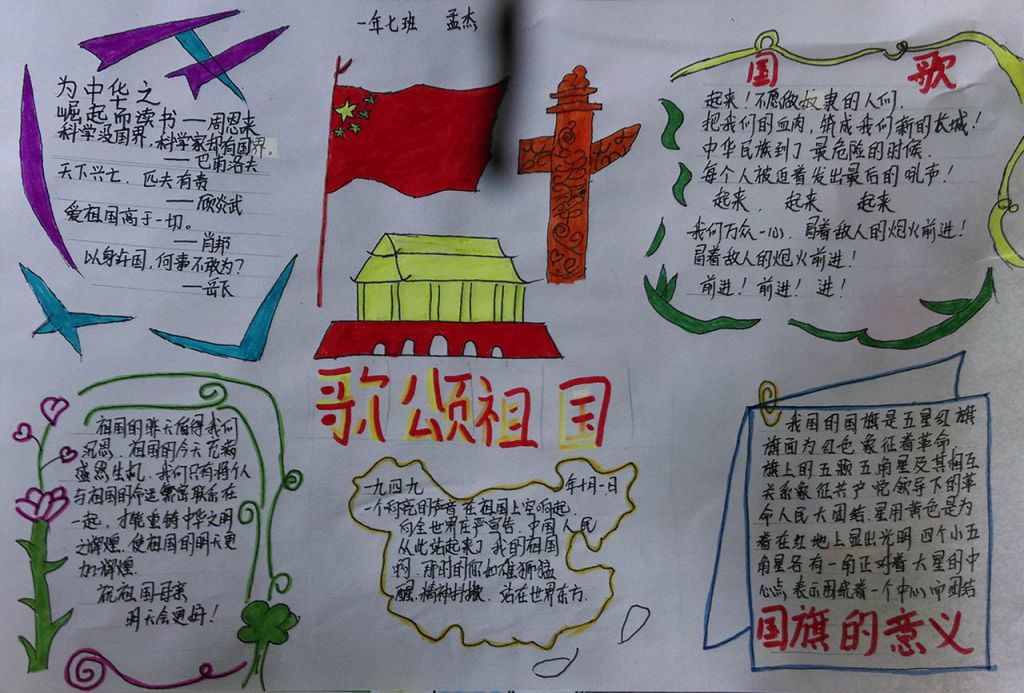 一年七班 孟杰
为中华之
崛起而读书—周恩来
科学没国界,科学家却有国界。
—巴甫洛夫
天下兴亡 匹夫有责
—顾炎武
爱祖国高于一切。
—肖邦
以身许国,何事不敢为?
—岳飞
国歌
起来!不愿做奴隶的人们.
把我们的血肉,筑成我们新的长城!
中华民族到了 最危险的时候.
每个人被迫着发出最后的吼声!
起来. 起来 起来
我们万众一心, 冒着敌人的炮火前进!
冒着敌人的炮火前进!
前进! 前进! 进!
歌颂祖国
祖国的昨天值得我们
沉思. 祖国的今天充满
盛然生机. 我们只有将个人
与祖国的命运紧密联系在
一起, 才能重铸中华文明
之辉煌. 使祖国的明天更
加辉煌.
祝祖国母亲
明天会更好!
一九四九 年十月一日
一个响亮的声音在祖国上空响起.
向全世界庄严宣告. 中国人民
从此站起来了 我的祖国
啊. 那时的你如雄狮猛
醒.精神抖擞. 站在世界东方.
我国的国旗是五星红旗
旗面为红色 象征着革命.
旗上的五颗五角星及其相互
关系象征共产党领导下的革
命人民大团结.星用黄色是为
着在红地上显出光明 四个小五
角星各有一角正对着大星的中
心点 表示围绕着一个中心而团结
国旗的意义